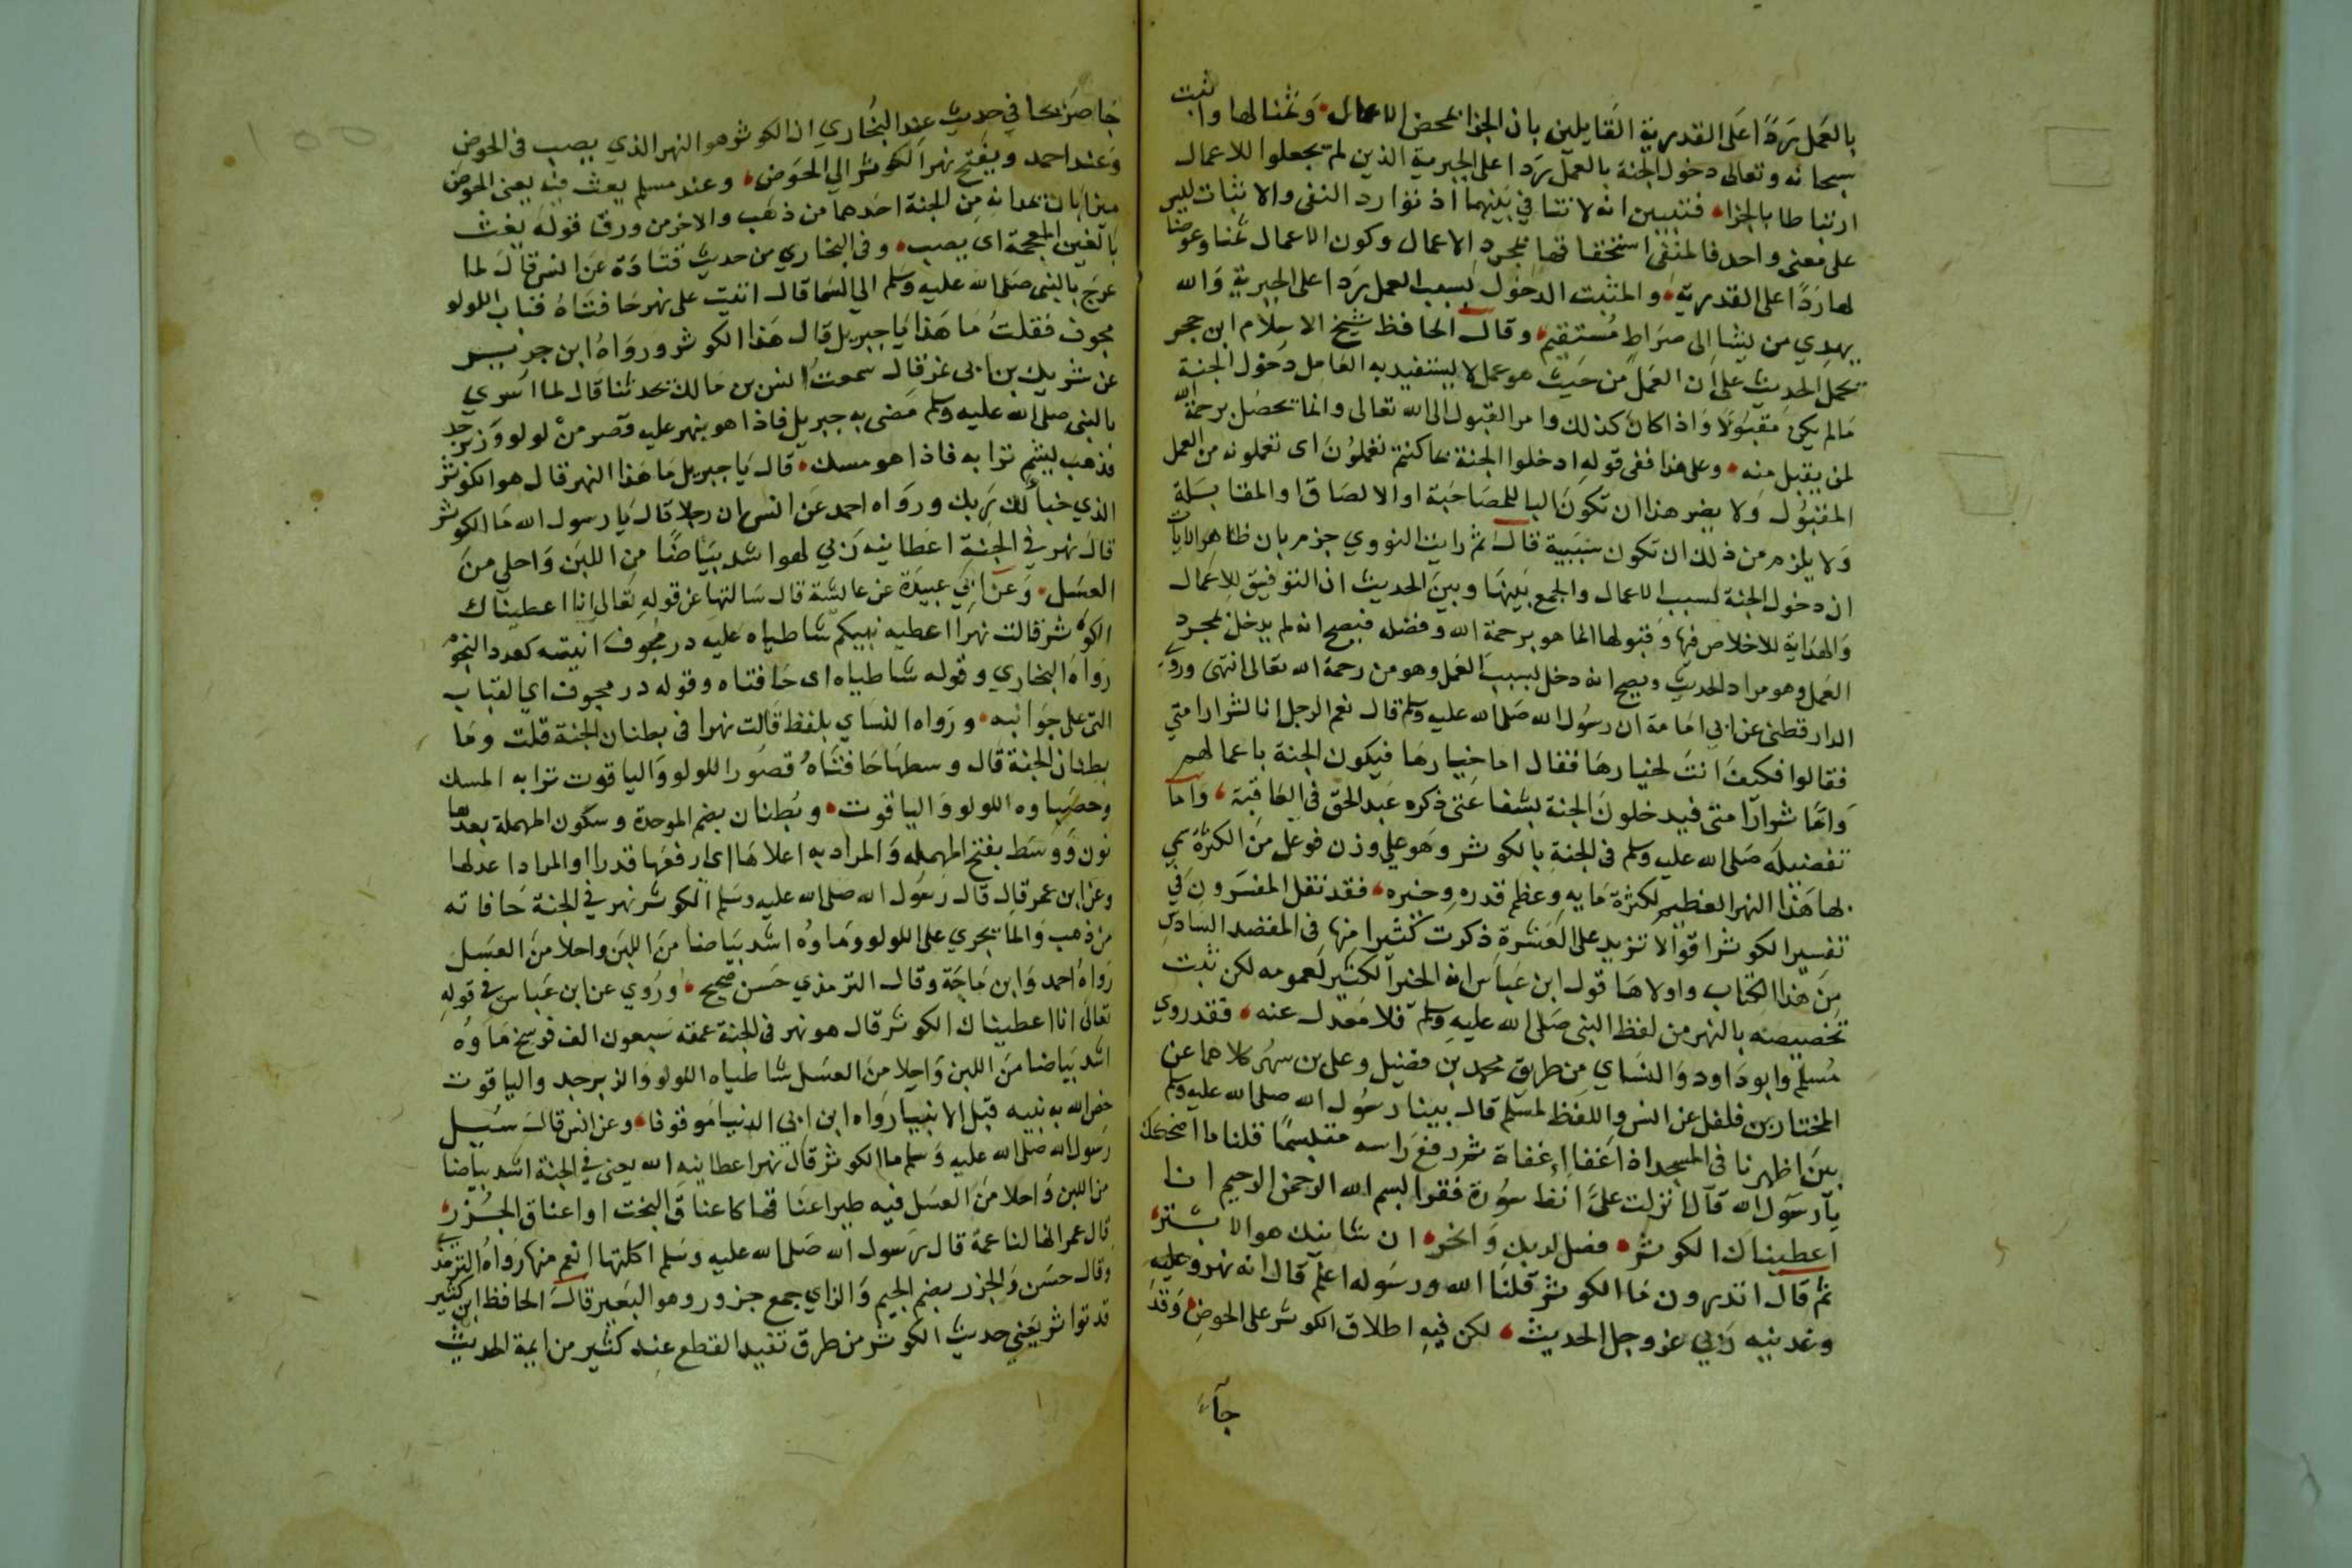 بالعمل ردا على القدرية القايلين بان الجزا بمحض الاعمال وثمنا لها واثبت
سبحانه وتعالى دخول الجنة بالعمل ردا على الجبرية الذين لم يجعلوا للاعمال
ارتباطا بالجزا فتبين انه لا تنافي بينهما اذ توارد النفى والاثبات ليس
على معنى واحد فالمنفى استحقاقها بمجرد الاعمال وكون الاعمال ثمنا وعوضا
لها ردا على القدرية والمثبت الدخول بسبب العمل ردا على الجبرية والله
يهدي من يشا الى صراط مستقيم وقال الحافظ شيخ الاسلام ابن حجر
يحمل الحديث على ان العمل من حيث هو عمل لا يستفيد به العامل دخول الجنة
مالم يكن مقبولا واذا كان كذلك وامر القبول الى الله تعالى وانما يحصل برحمة الله
لمن يقبل منه وعلى هذا ففى قوله ادخلوا الجنة بما كنتم تعملون اى تعملونه من العمل
المقبول ولا يضر هذا ان تكون البا للمصاحبة او الالصاق او المقابلة
ولا يلزم من ذلك ان تكون سببية قال ثم رايت النووي جزم بان ظاهر الايات
ان دخول الجنة بسبب الاعمال والجمع بينها وبين الحديث ان التوفيق للاعمال
والهداية للاخلاص فيها وقبولها انما هو برحمة الله وفضله فيصح انه لم يدخل بمجرد
العمل وهو مراد الحديث ويصح انه دخل بسبب العمل وهو من رحمة الله تعالى انتهى وروى
الدارقطنى عن ابي امامة ان رسول الله صلى الله عليه وسلم قال نعم الرجل انا لشرار امتي
فقالوا فكيف انت لخيارها فقال اما خيارها فيكون الجنة باعمالهم
واما شرار امتى فيدخلون الجنة بشفاعتى ذكره عبد الحق فى العاقبة واما
تفضيله صلى الله عليه وسلم فى الجنة بالكوثر وهو على وزن فوعل من الكثرة سمي
بها هذا النهر العظيم لكثرة مايه وعظم قدره وخيره فقد نقل المفسرون في
تفسير الكوثر اقوالا تزيد على العشرة ذكرت كثيرا منها فى المقصد السادس
من هذا الكتاب واولاها قول ابن عباس انه الخير الكثير لعمومه لكن ثبت
تخصيصه بالنهر من لفظ النبى صلى الله عليه وسلم فلا معدل عنه فقد روي
مسلم وابو داود والنساي من طريق محمد بن فضيل وعلى بن مسهر كلاهما عن
المختار بن فلفل عن انس واللفظ لمسلم قال بينا رسول الله صلى الله عليه وسلم
بين اظهرنا فى المسجد اذ اغفا اغفاة ثم رفع راسه متبسما قلنا ما اضحكك
يا رسول الله قال انزلت على انفا سورة فقرا بسم الله الرحمن الرحيم انا
اعطيناك الكوثر فصل لربك وانحر ان شانئك هو الابتر
ثم قال اتدرون ما الكوثر قلنا الله ورسوله اعلم قال انه نهر وعليه
وعدنيه ربي عز وجل الحديث لكن فيه اطلاق الكوثر على الحوض وقد
جآء
جا صريحا في حديث عند البخاري ان الكوثر هو النهر الذي يصب فى الحوض
وعند احمد ويفتح نهر الكوثر الى الحوض وعند مسلم يغث فيه يعنى الحوض
ميزابان يمدانه من الجنة احدهما من ذهب والاخر من ورق قوله يغث
بالغين المعجمة اى يصب وفى البخاري من حديث قتادة عن انس قال لما
عرج بالنبى صلى الله عليه وسلم الى السما قال اتيت على نهر حافتاه قباب اللولو
مجوف فقلت ما هذا يا جبريل قال هذا الكوثر ورواه ابن جرير
عن شريك بن ابى نمر قال سمعت انس بن مالك يحدثنا قال لما اسري
بالنبى صلى الله عليه وسلم مضى به جبريل فاذا هو بنهر عليه قصر من لولو وزبرجد
فذهب يشم ترابه فاذا هو مسك قال يا جبريل ما هذا النهر قال هو الكوثر
الذي خبأ لك ربك ورواه احمد عن انس ان رجلا قال يا رسول الله ما الكوثر
قال نهر في الجنة اعطانيه ربي لهو اشد بياضا من اللبن واحلى من
العسل وعن ابي عبيدة عن عائشة قال سالتها عن قوله تعالى انا اعطيناك
الكوثر قالت نهرا اعطيه نبيكم شاطياه عليه در مجوف انيته كعدد النجوم
رواه البخاري وقوله شاطياه اى حافتاه وقوله در مجوف اي القباب
التى على جوانبه ورواه النساي بلفظ قالت نهرا فى بطنان الجنة قلت وما
بطنان الجنة قال وسطها حافتاه قصور اللولو والياقوت ترابه المسك
وحصباوه اللولو والياقوت وبطنان بضم الموحدة وسكون المهملة بعدها
نون ووسط بفتح المهملة والمراد به اعلاها اى ارفعها قدرا او المراد اعدلها
وعن ابن عمر قال قال رسول الله صلى الله عليه وسلم الكوثر نهر في الجنة حافاته
من ذهب والما يجري على اللولو وماوه اشد بياضا من اللبن واحلا من العسل
رواه احمد وابن ماجة وقال الترمذي حسن صحيح وروي عن ابن عباس في قوله
تعالى انا اعطيناك الكوثر قال هو نهر فى الجنة عمقه سبعون الف فرسخ ماوه
اشد بياضا من اللبن واحلا من العسل شاطياه اللولو والزبرجد والياقوت
خص الله به نبيه قبل الانبيا رواه ابن ابى الدنيا موقوفا وعن انس قال سيل
رسول الله صلى الله عليه وسلم ما الكوثر قال نهر اعطانيه الله يعنى في الجنة اشد بياضا
من اللبن واحلا من العسل فيه طير اعناقها كاعناق البخت او اعناق الجزر
قال عمر انها لناعمة قال رسول الله صلى الله عليه وسلم اكلتها انعم منها رواه الترمذى
وقال حسن والجزر بضم الجيم والزاي جمع جزور وهو البعير قال الحافظ ابن كثير
قد تواتر يعني حديث الكوثر من طرق تفيد القطع عند كثير من ايمة الحديث